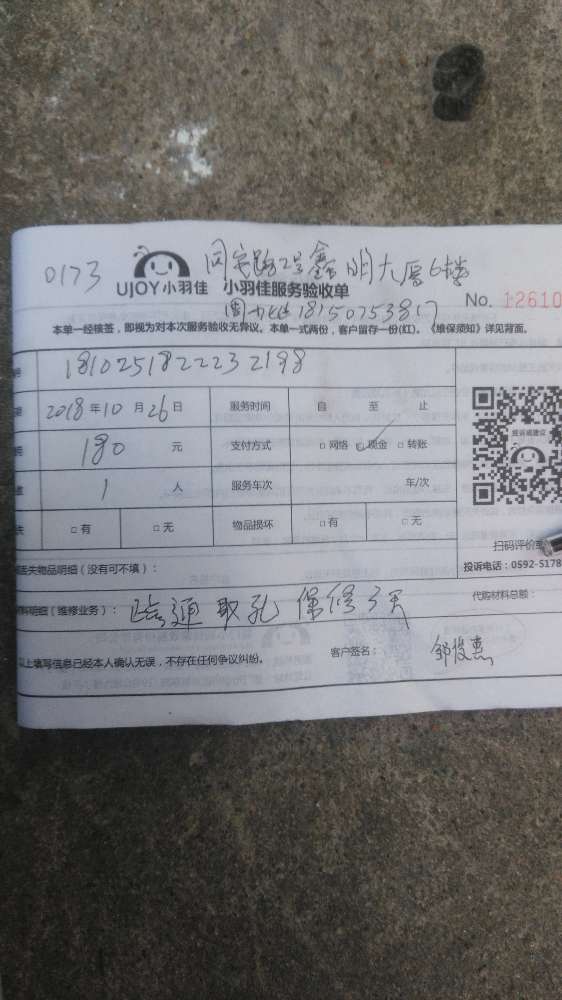 0173 同安路2号鑫明大厦6楼
UJOY小羽佳 小羽佳服务验收单
周 18150753817 No. 12610
本单一经核签，即视为对本次服务验收无异议。本单一式两份，客户留存一份(红)。《维保须知》详见背面。
号 1810251822232198
期 2018年10月26日 服务时间 自 至 止
180 元 支付方式 □网络 □现金 □转账
1 人 服务车次 车/次
□有 □无 物品损坏 □有 □无
投诉或建议
扫码评价
投诉电话：0592-5178
丢失物品明细（没有可不填）：
材料明细（维修业务）： 疏通取孔 保修3天 代购材料总额：
以上填写信息已经本人确认无误，不存在任何争议纠纷。 客户签名： 邹俊惠